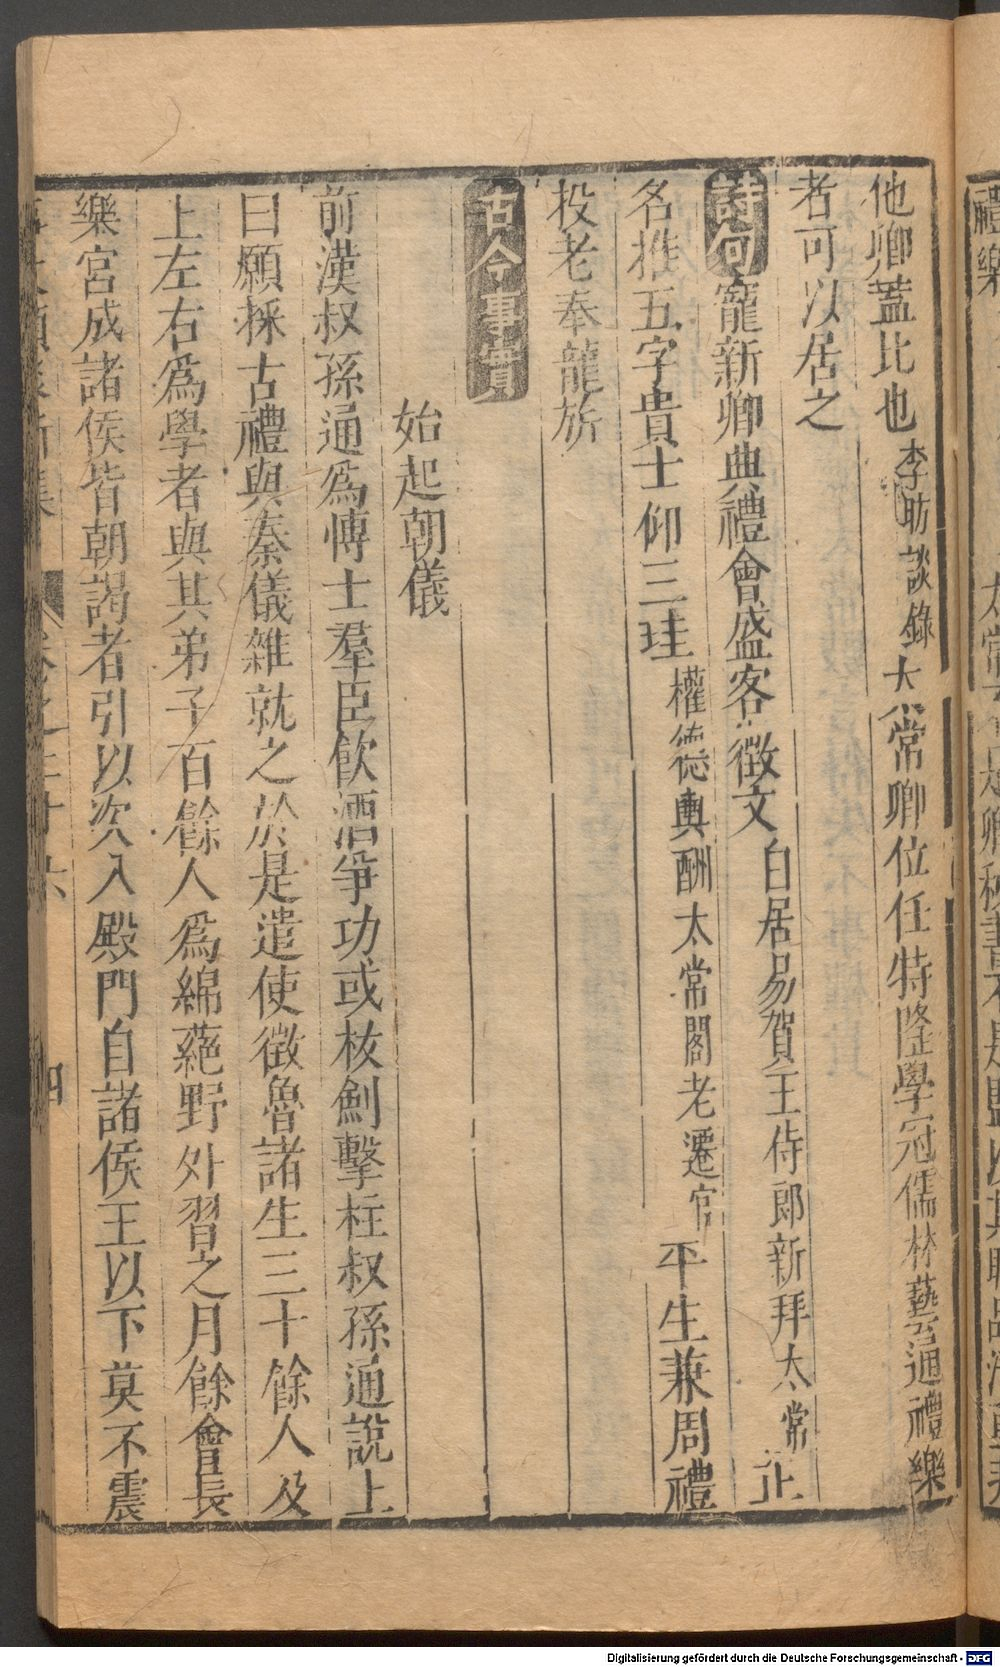 他卿蓋比也李昉談錄太常卿位任特隆學冠儒林藝通禮樂
者可以居之
詩句寵新卿典禮會盛客徵文白居易賀王侍郎新拜太常正
名推五字貴士仰三珪權德輿酬太常閣老遷官平生兼周禮
投老奉龍旂
古今事實
始起朝儀
前漢叔孫通爲博士羣臣飲酒爭功或核劍擊柱叔孫通說上
曰願採古禮與秦儀雜就之於是遣使徵魯諸生三十餘人及
上左右爲學者與其弟子百餘人爲綿蕝野外習之月餘會長
樂宮成諸侯皆朝謁者引以次入殿門自諸侯王以下莫不震
Digitalisierung gefördert durch die Deutsche Forschungsgemeinschaft - DFG